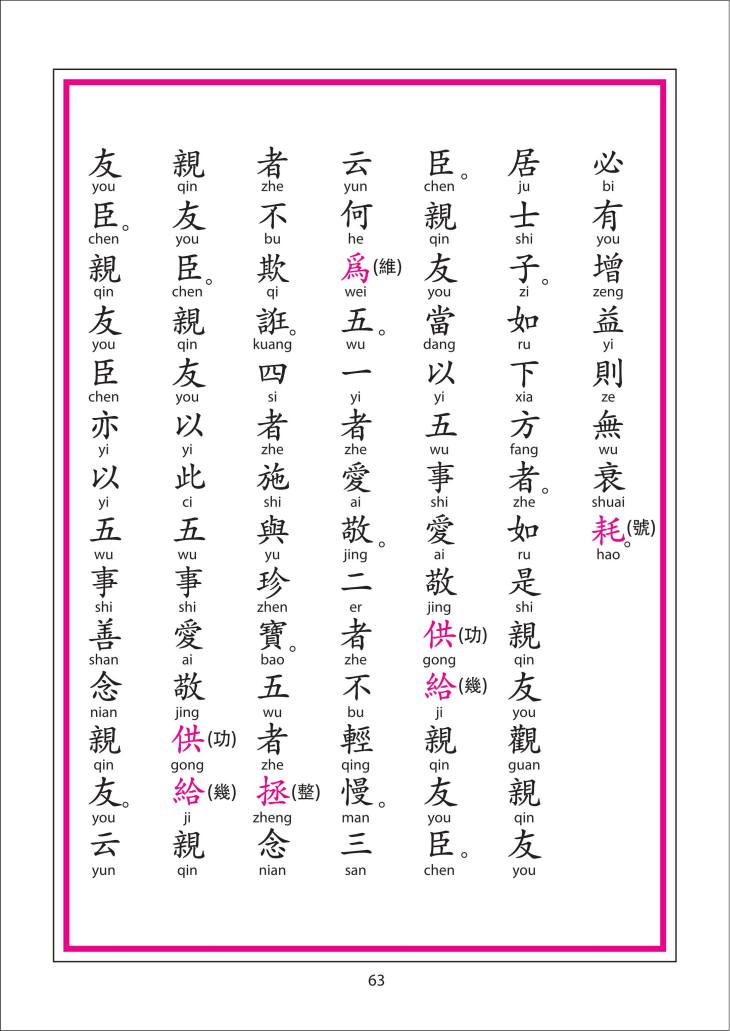 必有增益則無衰耗(號)。
bi you zeng yi ze wu shuai hao
居士子。如下方者。如是親友觀親友
ju shi zi ru xia fang zhe ru shi qin you guan qin you
臣。親友當以五事愛敬供(功)給(幾)親友臣。
chen qin you dang yi wu shi ai jing gong ji qin you chen
云何爲(維)五。一者愛敬。二者不輕慢。三
yun he wei wu yi zhe ai jing er zhe bu qing man san
者不欺誑。四者施與珍寶。五者拯(整)念
zhe bu qi kuang si zhe shi yu zhen bao wu zhe zheng nian
親友臣。親友以此五事愛敬供(功)給(幾)親
qin you chen qin you yi ci wu shi ai jing gong ji qin
友臣。親友臣亦以五事善念親友。云
you chen qin you chen yi yi wu shi shan nian qin you yun
63